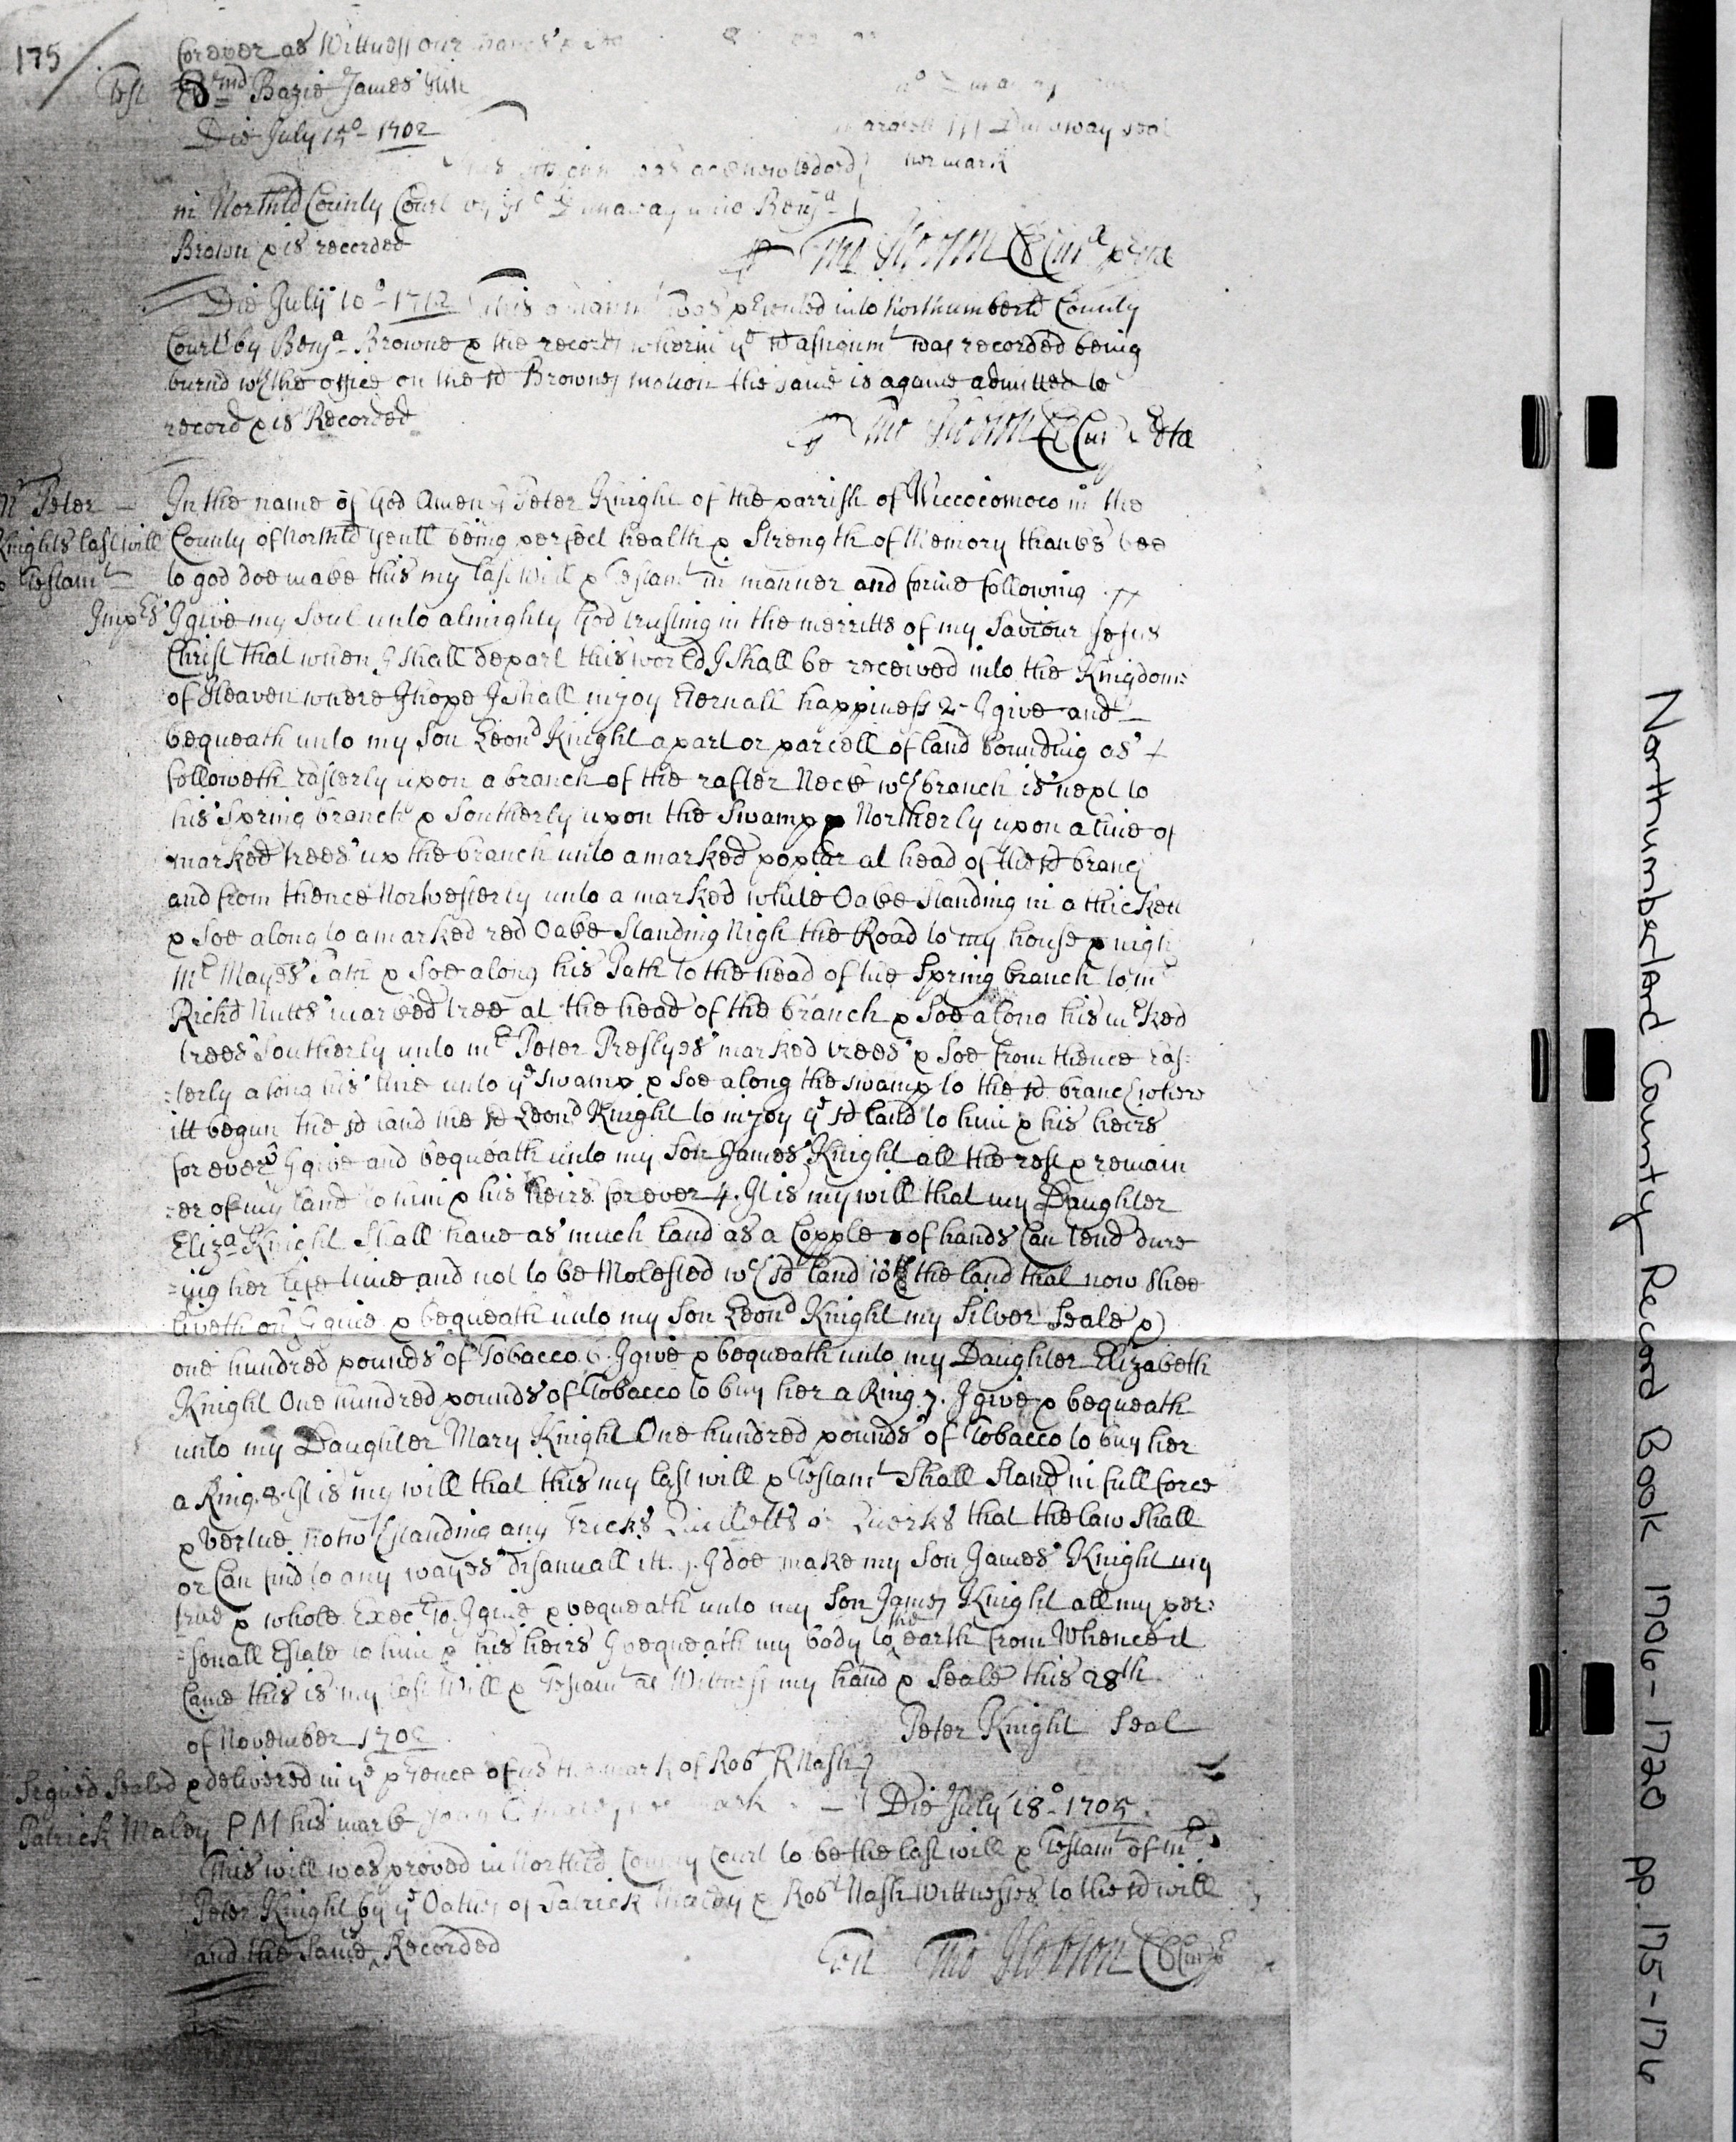 175
forever as Wittness our hands &
Test Edmd Bazie James Hill
Die July 15o 1702
Dunaway seal
her mark
was acknowledged
in Northld County Court by Dunaway unto Benja
Brown & is recorded
Tho Hobson Cl Cur
Die July 10o 1712 This was psented into Northumberld County
Court by Benja Browne & the records wherin ye sd assignmt was recorded being
burnd wth the office on the sd Browns motion the same is againe admitted to
record & is Recorded
Tho Hobson Cl Cur
Mr Peter
Knights last will
& Testamt
In the name of God Amen I Peter Knight of the parrish of Wiccocomoco in the
County of Northld Gentl being perfect health & Strength of Memory thankes bee
to god doe make this my last Will & Testamt in manner and forme following
Imps I give my Soul unto almighty God trusting in the merritts of my Saviour Jesus
Christ that when I shall depart this world I shall be received into the Kingdome
of Heaven where I hope I shall injoy Eternall happiness 2 I give and
bequeath unto my Son Leond Knight a part or parcell of land bounding as
followeth Easterly upon a branch of the rafter Neck wch branch is next to
his Spring branch & Southerly upon the Swamp & Northerly upon a line of
marked trees up the branch unto a marked poplar at head of the sd branch
and from thence Norwesterly unto a marked white Oake Standing in a thickett
& Soe along to a marked red Oake Standing Nigh the Road to my house & nigh
Mr Mayes Path & Soe along his Path to the head of the Spring branch to mr
Richd Nutts marked tree at the head of the branch & Soe along his mrked
trees Southerly unto mr Peter Preslyes marked trees & Soe from thence Eas:
=terly along his line unto ye swamp & Soe along the swamp to the sd branch where
itt begun the sd land the sd Leond Knight to injoy ye sd land to him & his heirs
for ever 3 I give and bequeath unto my Son James Knight all the rest & remain
=er of my land to him & his heirs for ever 4. It is my will that my Daughter
Eliza Knight Shall have as much land as a Copple of hands Can tend dure
=ing her life time and not to be Molested wch sd land is the land that now shee
liveth on 5 I give & bequeath unto my Son Leond Knight my Silver Seale &
one hundred pounds of Tobacco 6. I give & bequeath unto my Daughter Elizabeth
Knight One hundred pounds of Tobacco to buy her a Ring. 7. I give & bequeath
unto my Daughter Mary Knight One hundred pounds of Tobacco to buy her
a Ring. 8. It is my will that this my last will & Testamt Shall Stand in full force
& Vertue notwthstanding any Tricks Quilletts or Querks that the law Shall
or Can find to any wayes disanuall itt. 9. I doe make my Son James Knight my
true & whole Execr 10. I give & bequeath unto my Son James Knight all my per:
=sonall Estate to him & his heirs I bequeath my body to the earth from Whence it
Came this is my last Will & Testamt as Wittness my hand & Seale this 28th
of November 1702
Peter Knight Seal
Signed Sealed & delivered in ye psence of us the mark of Robt R Nash
Patrick Maley P M his marke
Die July 18o 1705
This will was proved in Northld County Court to be the last will & Testamt of mr
Peter Knight by ye Oathes of Patrick Maley & Robt Nash Wittnesses to the sd will
and the Same is Recorded
Test Tho Hobson Cl Cur
Northumberland County Record Book 1706-1720 pp. 175-176